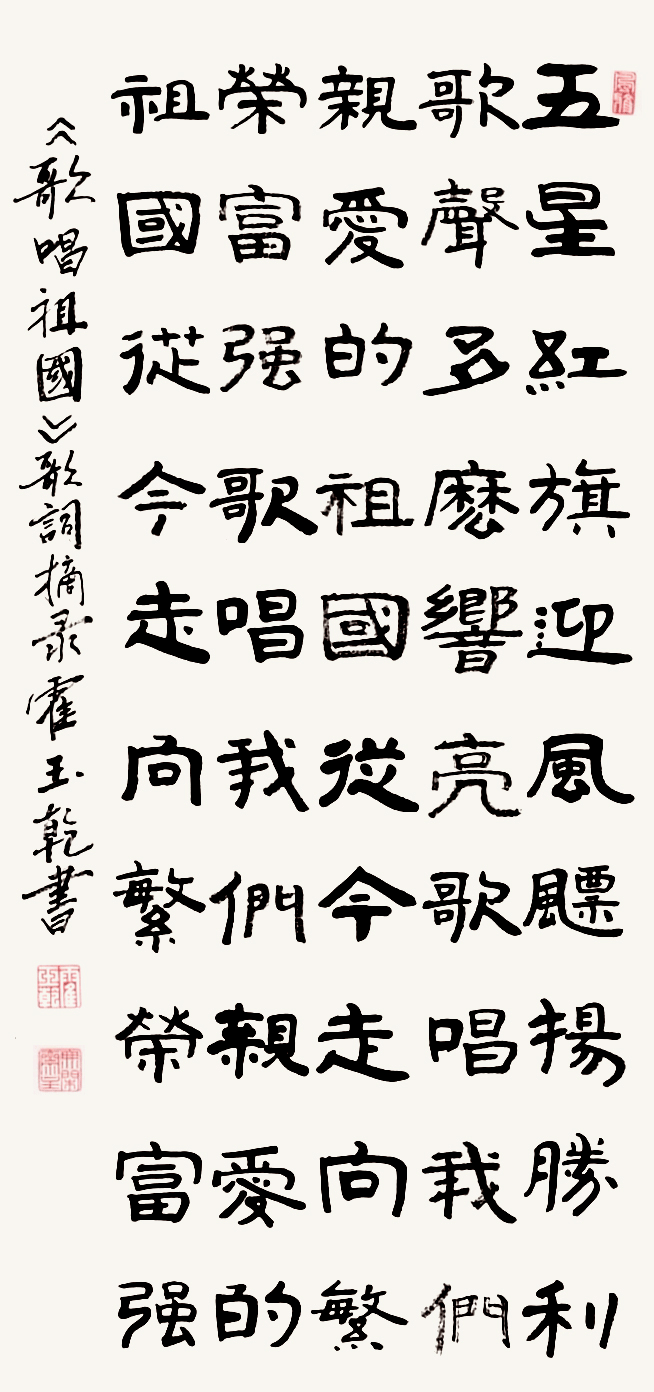 五星紅旗迎風飃揚勝利
歌聲多麽響亮歌唱我們
親愛的祖國從今走向繁
榮富强歌唱我們親愛的
祖國從今走向繁榮富强
《歌唱祖國》歌詞摘录霍玉乾書